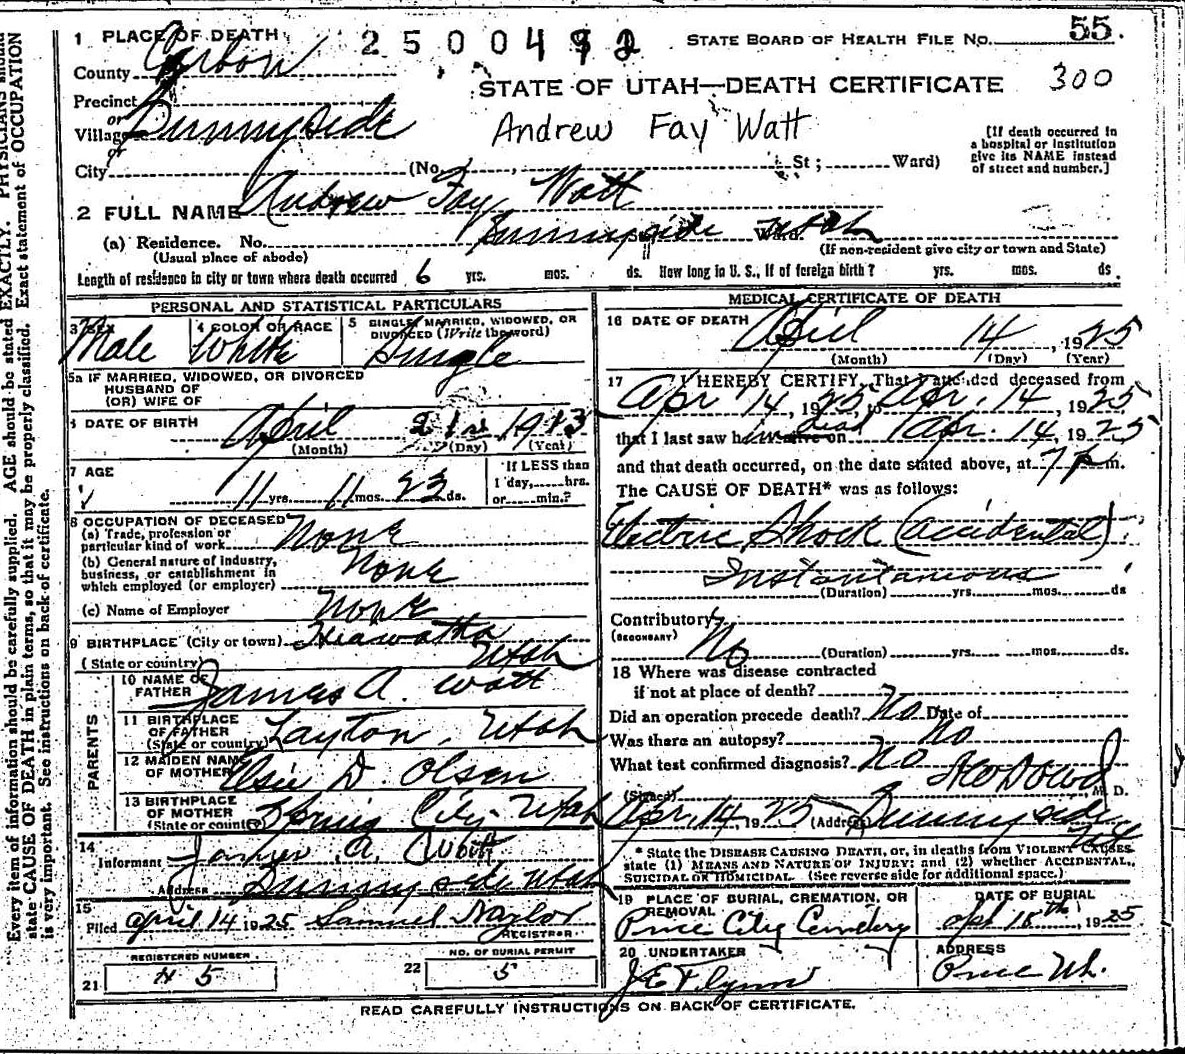 1 PLACE OF DEATH 2500492 STATE BOARD OF HEALTH FILE NO. 55.
County Carbon STATE OF UTAH—DEATH CERTIFICATE 300
Precinct
or
Village Sunnyside Andrew Fay Watt [If death occurred in a hospital or institution give its NAME instead of street and number.]
or
City (No. , St ; Ward)
2 FULL NAME Andrew Fay Watt
(a) Residence. No. Sunnyside Utah
(Usual place of abode) (If non-resident give city or town and State)
Length of residence in city or town where death occurred 6 yrs. mos. ds. How long in U. S., if of foreign birth? yrs. mos. ds.
PERSONAL AND STATISTICAL PARTICULARS
3 SEX Male 4 COLOR OR RACE White 5 SINGLE, MARRIED, WIDOWED, OR DIVORCED (Write the word) Single
5a IF MARRIED, WIDOWED, OR DIVORCED
HUSBAND OF
(OR) WIFE OF
6 DATE OF BIRTH April 21st, 1913
(Month) (Day) (Year)
7 AGE 11 yrs. 11 mos. 23 ds. If LESS than 1 day, hrs. or min.?
8 OCCUPATION OF DECEASED
(a) Trade, profession or
particular kind of work None
(b) General nature of industry,
business, or establishment in
which employed (or employer) None
(c) Name of Employer None
9 BIRTHPLACE (City or town) Hiawatha
(State or country) Utah
PARENTS
10 NAME OF FATHER James A. Watt
11 BIRTHPLACE OF FATHER (State or country) Layton, Utah
12 MAIDEN NAME OF MOTHER Elsie D Olsen
13 BIRTHPLACE OF MOTHER (State or country) Spring City Utah
14 Informant James A. Watt
Address Sunnyside Utah
15 Filed April 14 1925 Samuel Naylor
REGISTRAR.
REGISTERED NUMBER NO. OF BURIAL PERMIT
21 5 22 5
MEDICAL CERTIFICATE OF DEATH
16 DATE OF DEATH April 14, 1925
(Month) (Day) (Year)
17 I HEREBY CERTIFY, That I attended deceased from
Apr 14, 1925, to Apr. 14, 1925
that I last saw him dead alive on Apr. 14, 1925
and that death occurred, on the date stated above, at 7 p m.
The CAUSE OF DEATH* was as follows:
Electric Shock (accidental).
Instantaneous
(Duration) yrs. mos. ds
Contributory
(SECONDARY) No
(Duration) yrs. mos. ds.
18 Where was disease contracted
if not at place of death?
Did an operation precede death? No Date of
Was there an autopsy? No
What test confirmed diagnosis? No
(Signed) McDowd M. D.
Apr. 14, 1925 (Address) Sunnyside
* State the DISEASE CAUSING DEATH, or, in deaths from VIOLENT CAUSES
state (1) MEANS AND NATURE OF INJURY; and (2) whether ACCIDENTAL,
SUICIDAL OR HOMICIDAL. (See reverse side for additional space.)
19 PLACE OF BURIAL, CREMATION, OR REMOVAL DATE OF BURIAL
Price City Cemetery Apl 18th, 1925
20 UNDERTAKER ADDRESS
J E Flynn Price Ut.
READ CAREFULLY INSTRUCTIONS ON BACK OF CERTIFICATE.
Every item of information should be carefully supplied. AGE should be stated EXACTLY. PHYSICIANS should
state CAUSE OF DEATH in plain terms, so that it may be properly classified. Exact statement of OCCUPATION
is very important. See instructions on back of certificate.